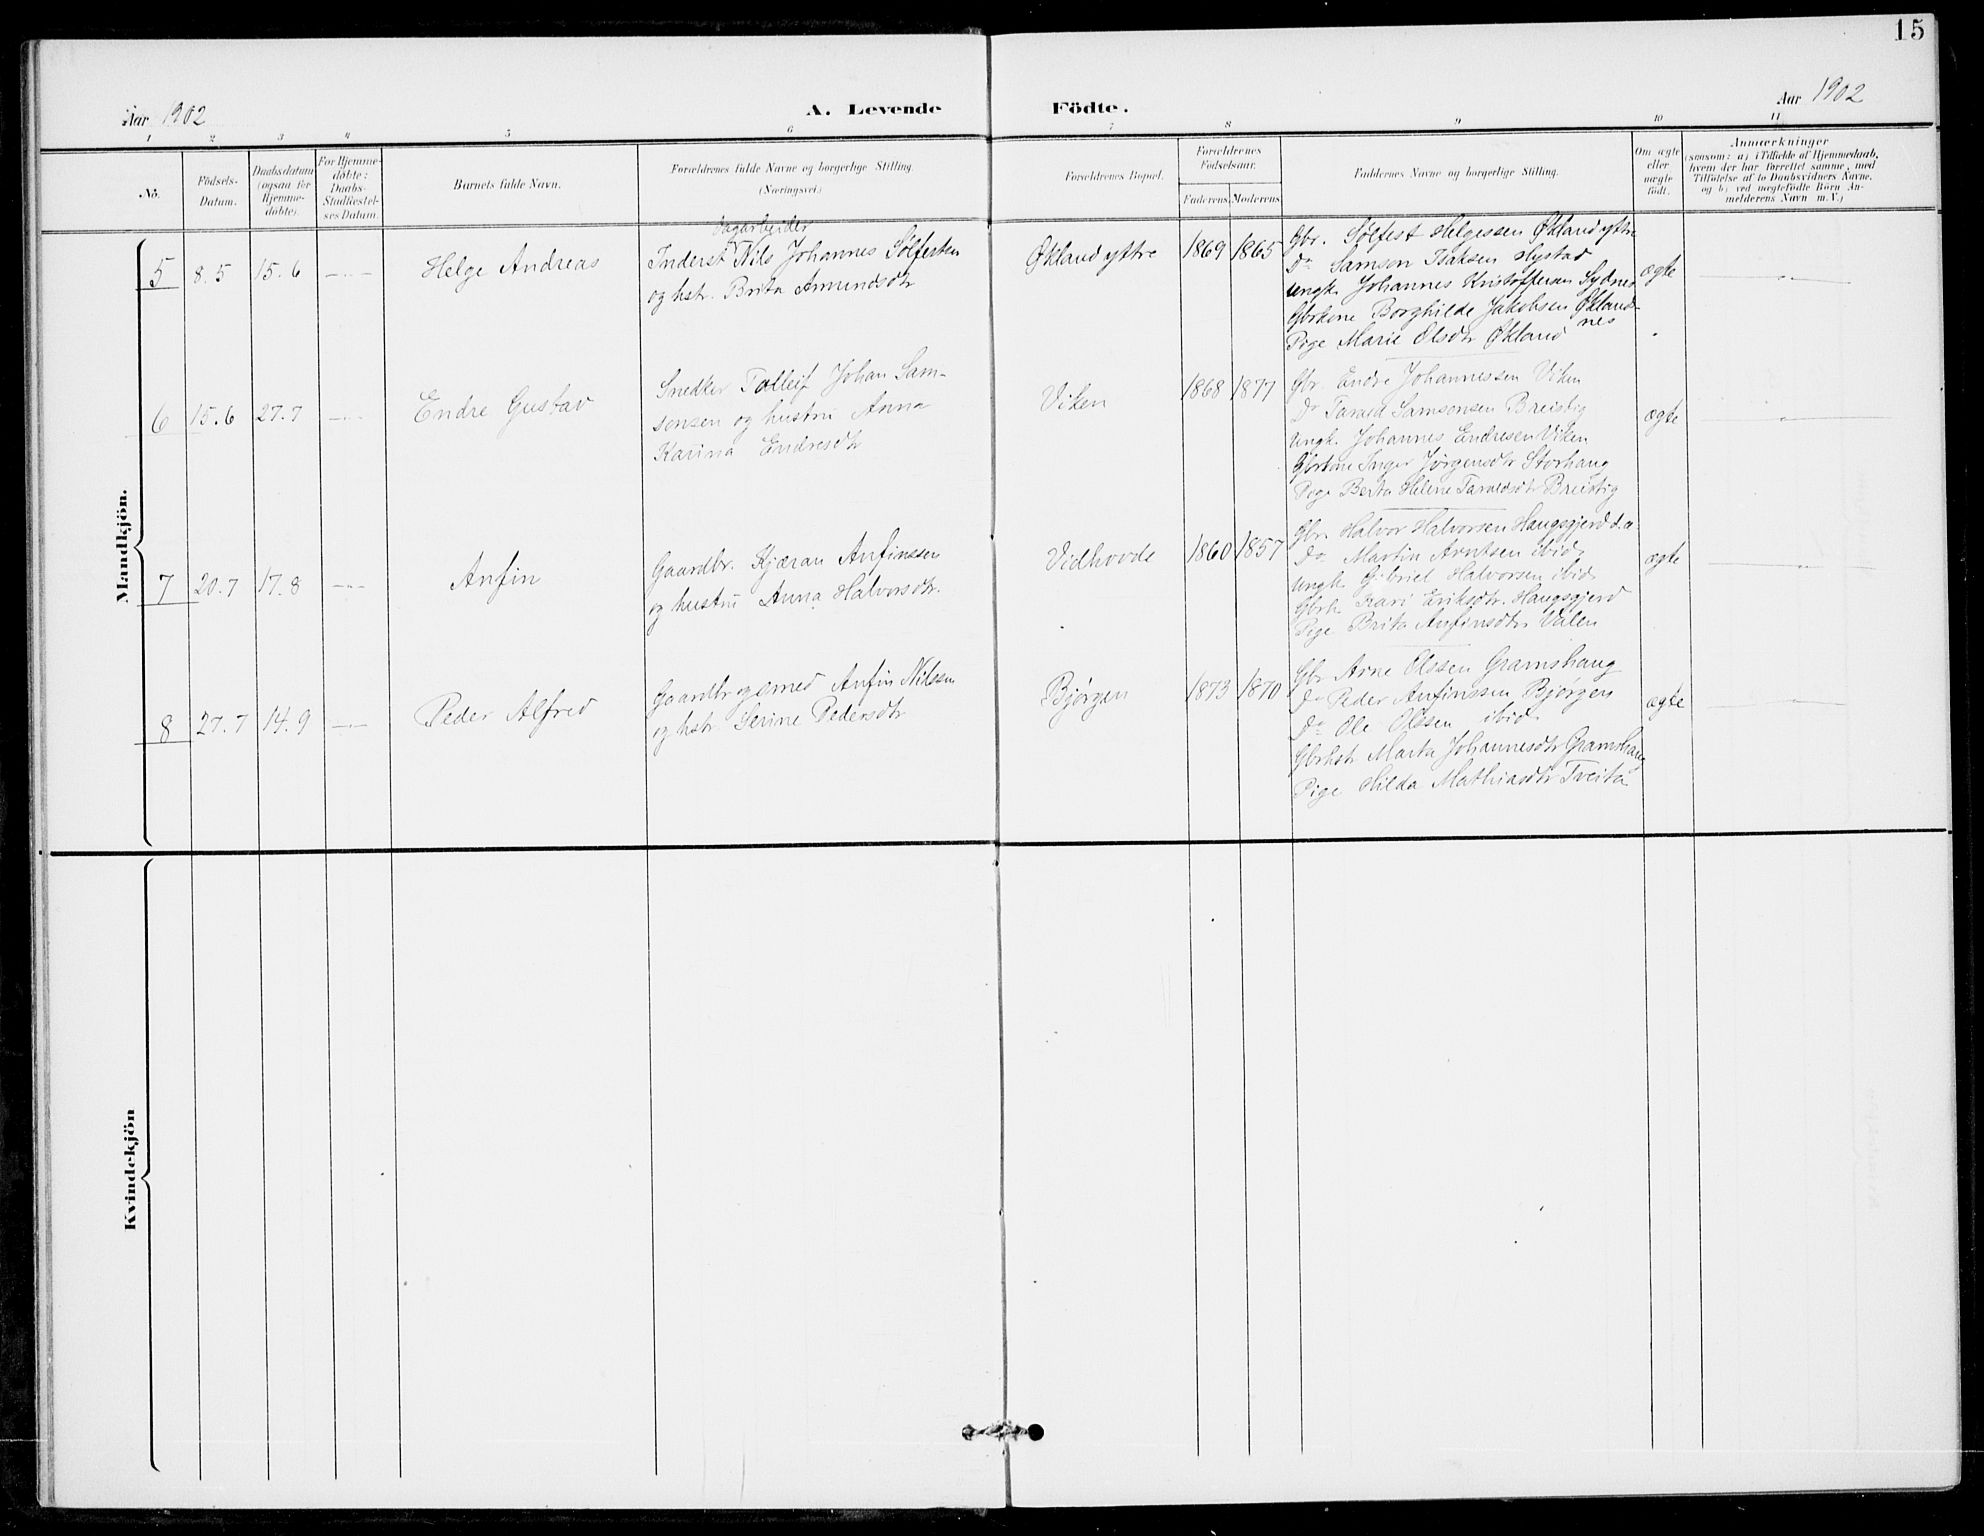 15
Aar 1902
A. Levende
Födte.
Aar 1902
1 2 3 4 5 6 7 8 9 10 11
No.
Födsels-
Datum.
Daabsdatum
(ogsaa for
Hjemme-
döbte).
For Hjemme-
döbte:
Daabs-
Stadfæstel-
ses Datum.
Barnets fulde Navn.
Forældrenes fulde Navne og borgerlige Stilling.
(Næringsvei.)
Forældrenes Bopæl.
Forældrenes
Födselsaar.
Faderens Moderens
Faddernes Navne og borgerlige Stilling.
Om ægte
eller
uægte
födt.
Anmærkninger
(saasom: a) i Tilfælde af Hjemmedaab,
hvem der har forrettet samme, med
Tilföielse af to Daabsvidners Navne,
og b) ved uægtefödte Börn An-
melderens Navn m. V.)
Mandkjön.
5 8.5 15.6 Helge Andreas
Dagarbeider
Inderst Nils Johannes Sölfesten
og hstr. Brita Amundsdtr
Økland yttre
1869 1865
Gbr. Sölfest Helgessen Økland yttre
Do Samson Isaksen Hystad
Ungk. Johannes Kristoffersen Sydnes
Gbrkone Borghilde Jakobsen Øklands-
nes
Pige Marie Olsdtr Økland
ægte
6 15.6 27.7 Endre Gustav
Snedker Tolleif Johan Sam-
sonsen og hustru Anna
Karina Endresdtr
Viken
1868 1877
Gbr. Endre Johannessen Viken
Do Tarald Samsonsen Breistig
Ungk. Johannes Endresen Viken
Gbrkone Inger Jørgensdtr Storhaug
Pige Berta Helene Taraldsdtr Breistig
ægte
7 20.7 17.8 Anfin
Gaardbr. Kjæran Anfinssen
og hustru Anna Halvorsdtr.
Vidhovde
1860 1857
Gbr. Halvor Halvorsen Haugsgjerd d.æ.
Do Martin Arntsen ibid.
Ungk. Gabriel Halvorsen ibid.
Gbrk Kari Eriksdtr. Haugsgjerd
Pige Brita Anfinsdtr Valen
ægte
8 27.7 14.9 Peder Alfred
Gaardbr og smed Anfin Nilssen
og hstr. Serine Pedersdtr
Bjørgen
1873 1870
Gbr Arne Olssen Gramshaug
Do Peder Anfinssen Bjørgen
Do Ole Olssen ibid.
Gbrhstr Marta Johannesdtr Gramshaug
Pige Hilda Mathiasdtr Tveita
ægte
Kvindekjön